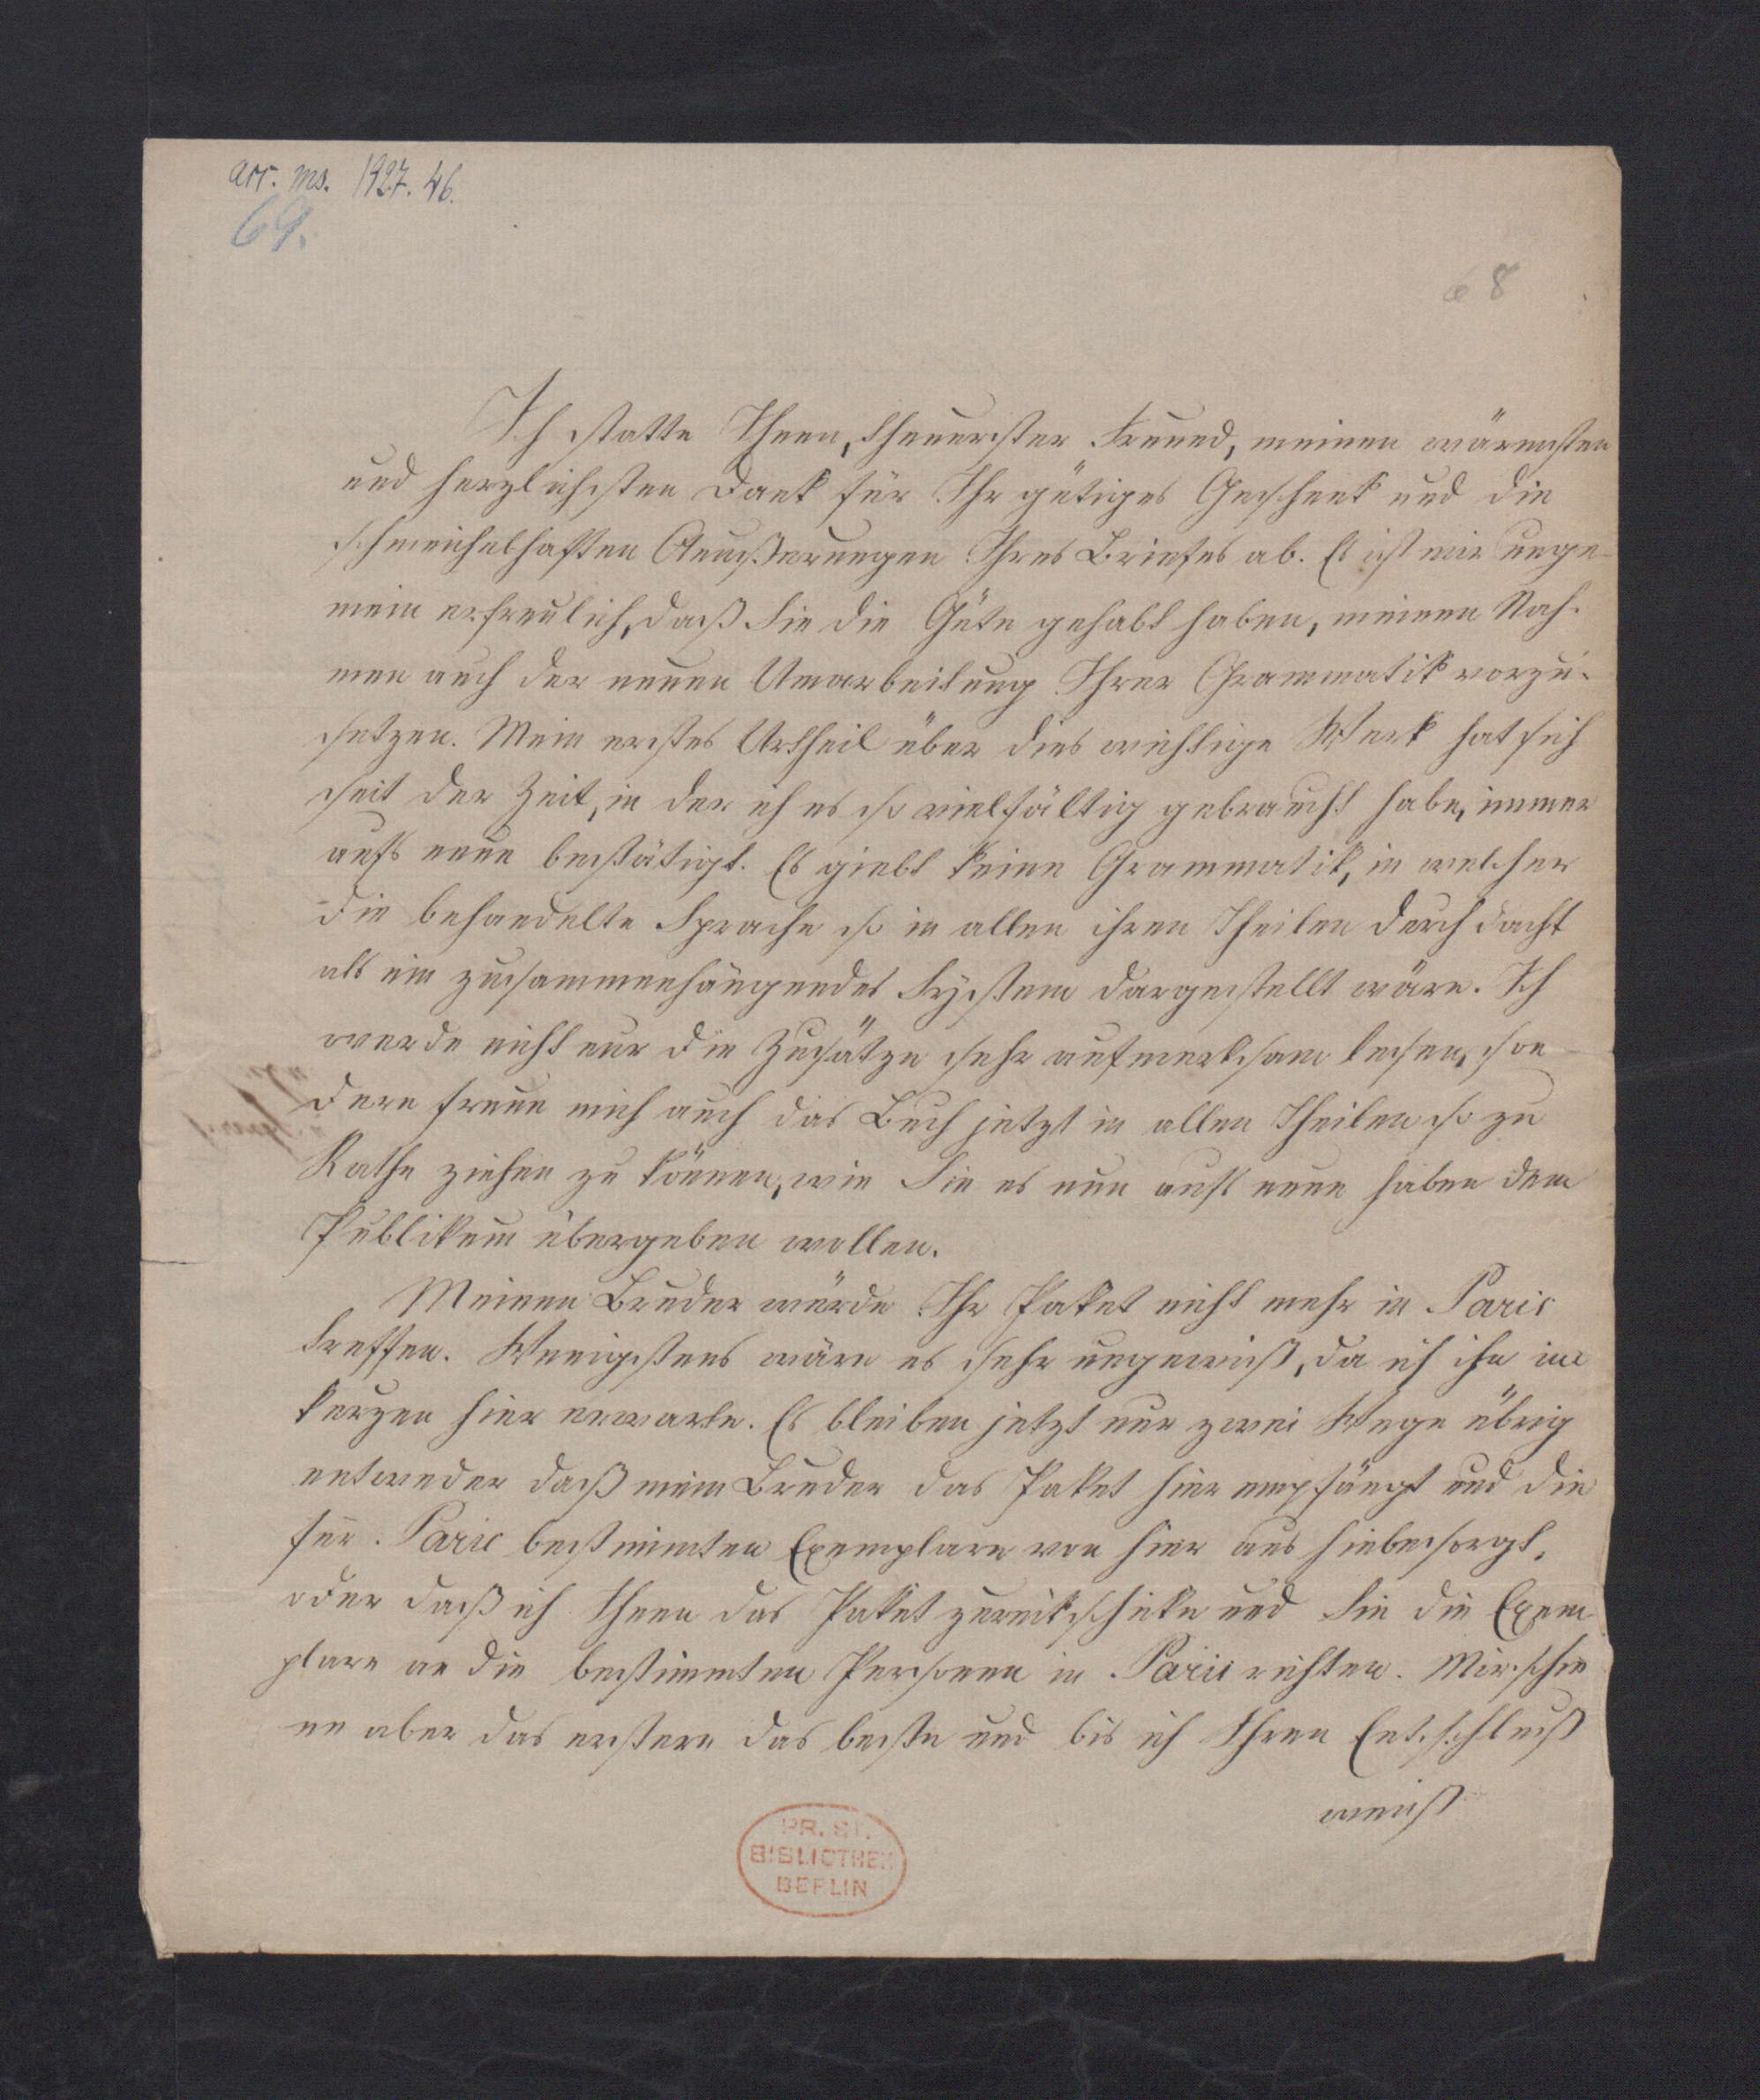 acc. ms. 1927. 46.
69.
68
Ich statte Ihnen, theuerster Freund, meinen wärmsten
und herzlichsten Dank für Ihr gütiges Geschenk und die
schmeichelhaften Aeußerungen Ihres Briefes ab. Es ist mir unge-
mein erfreulich, daß Sie die Güte gehabt haben, meinen Nah-
men auch der neuen Umarbeitung Ihrer Grammatik vorzu-
setzen. Mein erstes Urtheil über dies wichtige Werk hat sich
seit der Zeit, in der ich es so vielfältig gebraucht habe, immer
aufs neue bestätigt. Es giebt keine Grammatik, in welcher
die behandelte Sprache so in allen ihren Theilen durchdacht
als ein zusammenhängendes System dargestellt wäre. Ich
werde nicht nur die Zusätze sehr aufmerksam lesen, son-
dern freue mich auch das Buch jetzt in allen Theilen so zu
Rathe ziehen zu können, wie Sie es nun aufs neue haben dem
Publikum übergeben wollen.
Meinen Bruder würde Ihr Paket nicht mehr in Paris
treffen. Wenigstens wäre es sehr ungewiß, da ich ihn in
kurzen hier erwarte. Es bleiben jetzt nur zwei Wege übrig
entweder daß mein Bruder das Paket hier empfängt und die
für Paris bestimmten Exemplare von hier aus hinbesorgt,
oder daß ich Ihnen das Paket zurückschicke und Sie die Exem
plare an die bestimmten Personen in Paris richten. Mir schie
ne aber das erstere das beste und bis ich Ihren Entschluß
weiß
PR. ST.
BIBLIOTHEK
BERLIN